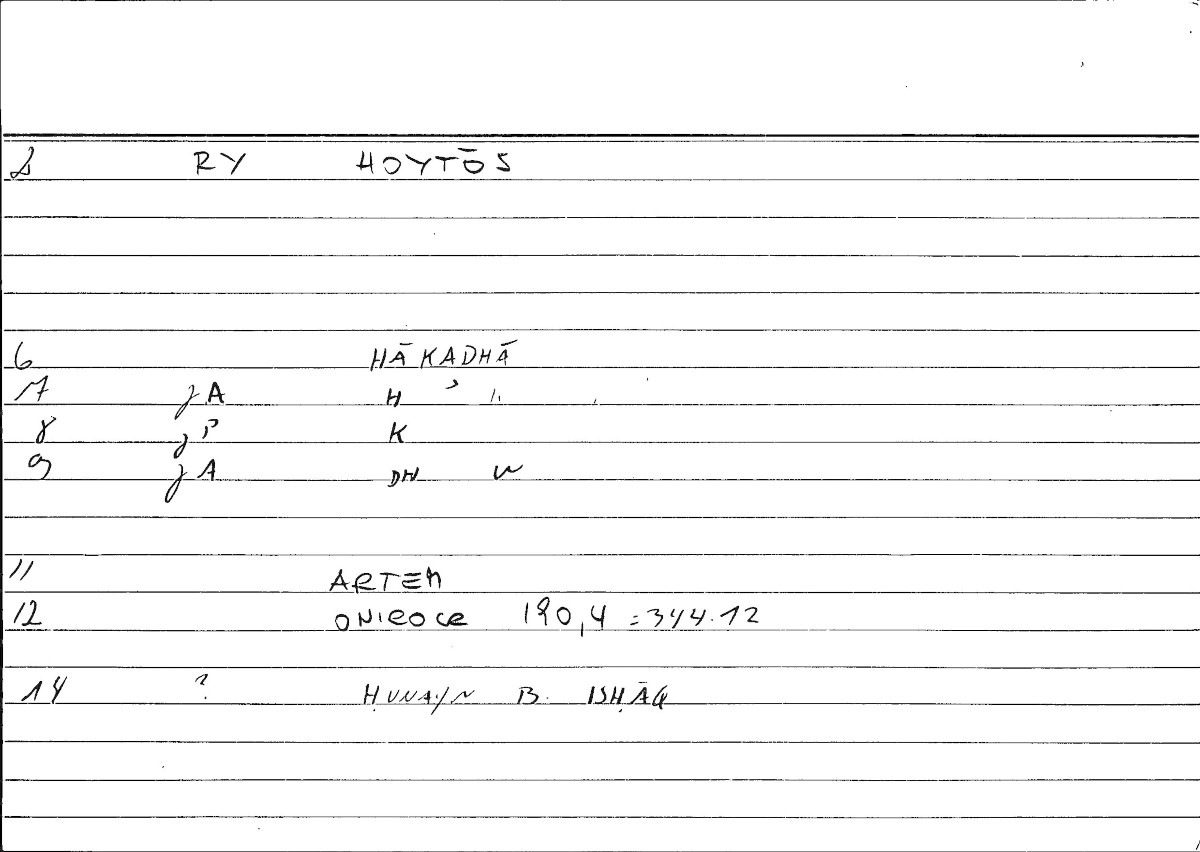 2 RY HOYTŌS
6 HĀKADHĀ
17 jA H
8 jP K
9 jA DH W
11 ARTEM
12 ONIROCR 190,4 = 344.12
14 ? ḤUNAYN B. ISḤĀQ